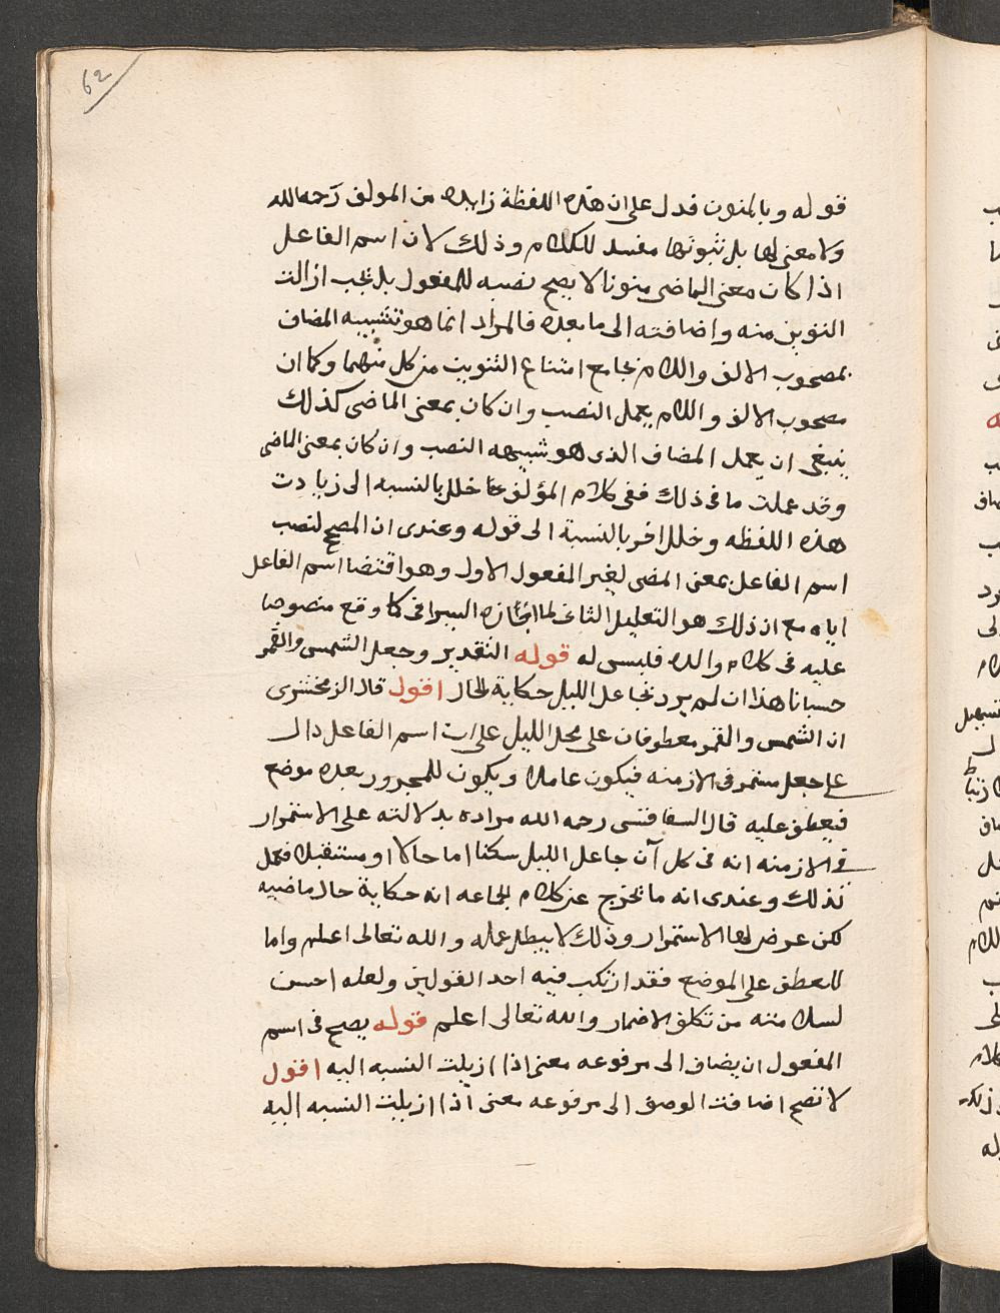 62
قوله وبالمنون فدل على ان هذه اللفظة زايده من المولف رحمه الله
ولا معنى لها بل ثبوتها مفسد للكلام وذلك لان اسم الفاعل
اذا كان معنى الماضى منونا لا يصح نصبه للمفعول بل يجب ازالت
التنوين منه واضافته الى ما بعده فالمراد انما هو تشبيه المضاف
بمصحوب الالف واللام بجامع امتناع التنوين من كل منهما وكما ان
مصحوب الالف واللام يعمل النصب وان كان بمعنى الماضى كذلك
ينبغى ان يعمل المضاف الذى هو شبيهه النصب وان كان بمعنى الماضى
وقد عملت ما فى ذلك ففى كلام المؤلف خلل بالنسبه الى زيادت
هذه اللفظه وخلل اخر بالنسبة الى قوله وعندى ان المصحح لنصب
اسم الفاعل بمعنى المضى لغير المفعول الاول وهو اقتضا اسم الفاعل
اياه مع ان ذلك هو التعليل الثانى لما اختاره السيرافى كما وقع منصوصا
عليه فى كلام والده فليس له قوله التقدير وجعل الشمس والقمر
حسبانا هذا ان لم يرد بجاعل الليل حكاية الحال اقول قال الزمخشرى
ان الشمس والقمر معطوفان على محل الليل على ان اسم الفاعل دال
على جعل مستمر فى الازمنه فيكون عامله ويكون للمجرور بعده موضع
فيعطف عليه قال السفاقسى رحمه الله مراده بدلالته على الاستمرار
فى الازمنه انه فى كل آن جاعل الليل سكنا اما حالا او مستقبلا فعمل
لذلك وعندى انه ما يخرج عن كلام الجاعه انه حكاية حال ماضيه
لكن عرض لها الاستمرار وذلك لا يبطل عمله والله تعالى اعلم واما
العطف على الموضع فقد ارتكب فيه احد القولين ولعله احسن
لسلامته من تكلف الاضمار والله تعالى اعلم قوله يصح فى اسم
المفعول ان يضاف الى مرفوعه معنى اذا ازيلت النسبه اليه اقول
لا تصح اضافت الوصف الى مرفوعه معنى اذا ازيلت النسبه اليه